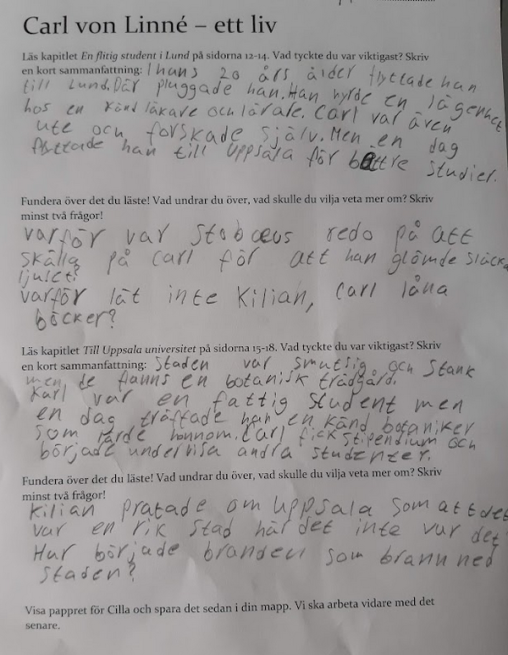 Carl von Linné – ett liv
Läs kapitlet En flitig student i Lund på sidorna 12-14. Vad tyckte du var viktigast? Skriv
en kort sammanfattning: I hans 20 års ålder flyttade han
till Lund. Där pluggade han. Han hyrde en lägenhet
hos en känd läkare och lärare. Carl var även
ute och forskade själv. Men en dag
flyttade han till Uppsala för bättre studier.
Fundera över det du läste! Vad undrar du över, vad skulle du vilja veta mer om? Skriv
minst två frågor!
varför var Stobæus redo på att
skälla på Carl för att han glömde släcka
ljuset?
varför lät inte Kilian, Carl låna
böcker?
Läs kapitlet Till Uppsala universitet på sidorna 15-18. Vad tyckte du var viktigast? Skriv
en kort sammanfattning: Staden var smutsig och stank
men de fanns en botanisk trädgård.
Karl var en fattig student men
en dag träffade han en känd botaniker
som lärde honnom. Carl fick stipendium och
började undervisa andra studenter.
Fundera över det du läste! Vad undrar du över, vad skulle du vilja veta mer om? Skriv
minst två frågor!
Kilian pratade om Uppsala som att det
var en rik stad när det inte var det
Hur började branden som brann ned
staden?
Visa pappret för Cilla och spara det sedan i din mapp. Vi ska arbeta vidare med det
senare.